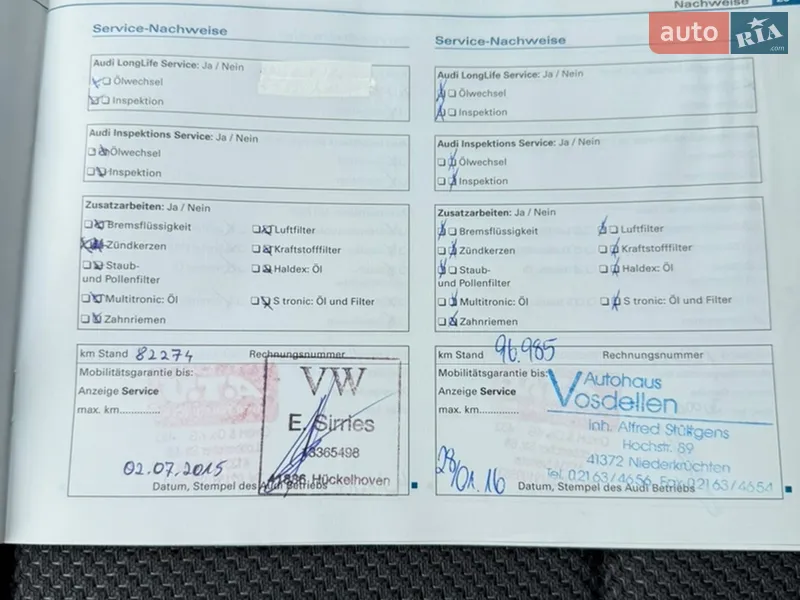 Nachweise
auto RIA .com
Service-Nachweise
Audi LongLife Service: Ja / Nein
Ölwechsel
Inspektion
Audi Inspektions Service: Ja / Nein
Ölwechsel
Inspektion
Zusatzarbeiten: Ja / Nein
Bremsflüssigkeit
Luftfilter
Zündkerzen
Kraftstofffilter
Staub-
und Pollenfilter
Haldex: Öl
Multitronic: Öl
S tronic: Öl und Filter
Zahnriemen
km Stand 82274
Rechnungsnummer
Mobilitätsgarantie bis:
Anzeige Service
max. km.............
VW
E. Sirries
41836 Hückelhoven
02.07.2015
Datum, Stempel des Audi Betriebs
Service-Nachweise
Audi LongLife Service: Ja / Nein
Ölwechsel
Inspektion
Audi Inspektions Service: Ja / Nein
Ölwechsel
Inspektion
Zusatzarbeiten: Ja / Nein
Bremsflüssigkeit
Luftfilter
Zündkerzen
Kraftstofffilter
Staub-
und Pollenfilter
Haldex: Öl
Multitronic: Öl
S tronic: Öl und Filter
Zahnriemen
km Stand 96.985
Rechnungsnummer
Mobilitätsgarantie bis:
Anzeige Service
max. km.............
Autohaus
Vosdellen
Inh. Alfred Stüttgens
Hochstr. 89
41372 Niederkrüchten
Tel. 02163/4656, Fax 02163/4654
28/01.16
Datum, Stempel des Audi Betriebs